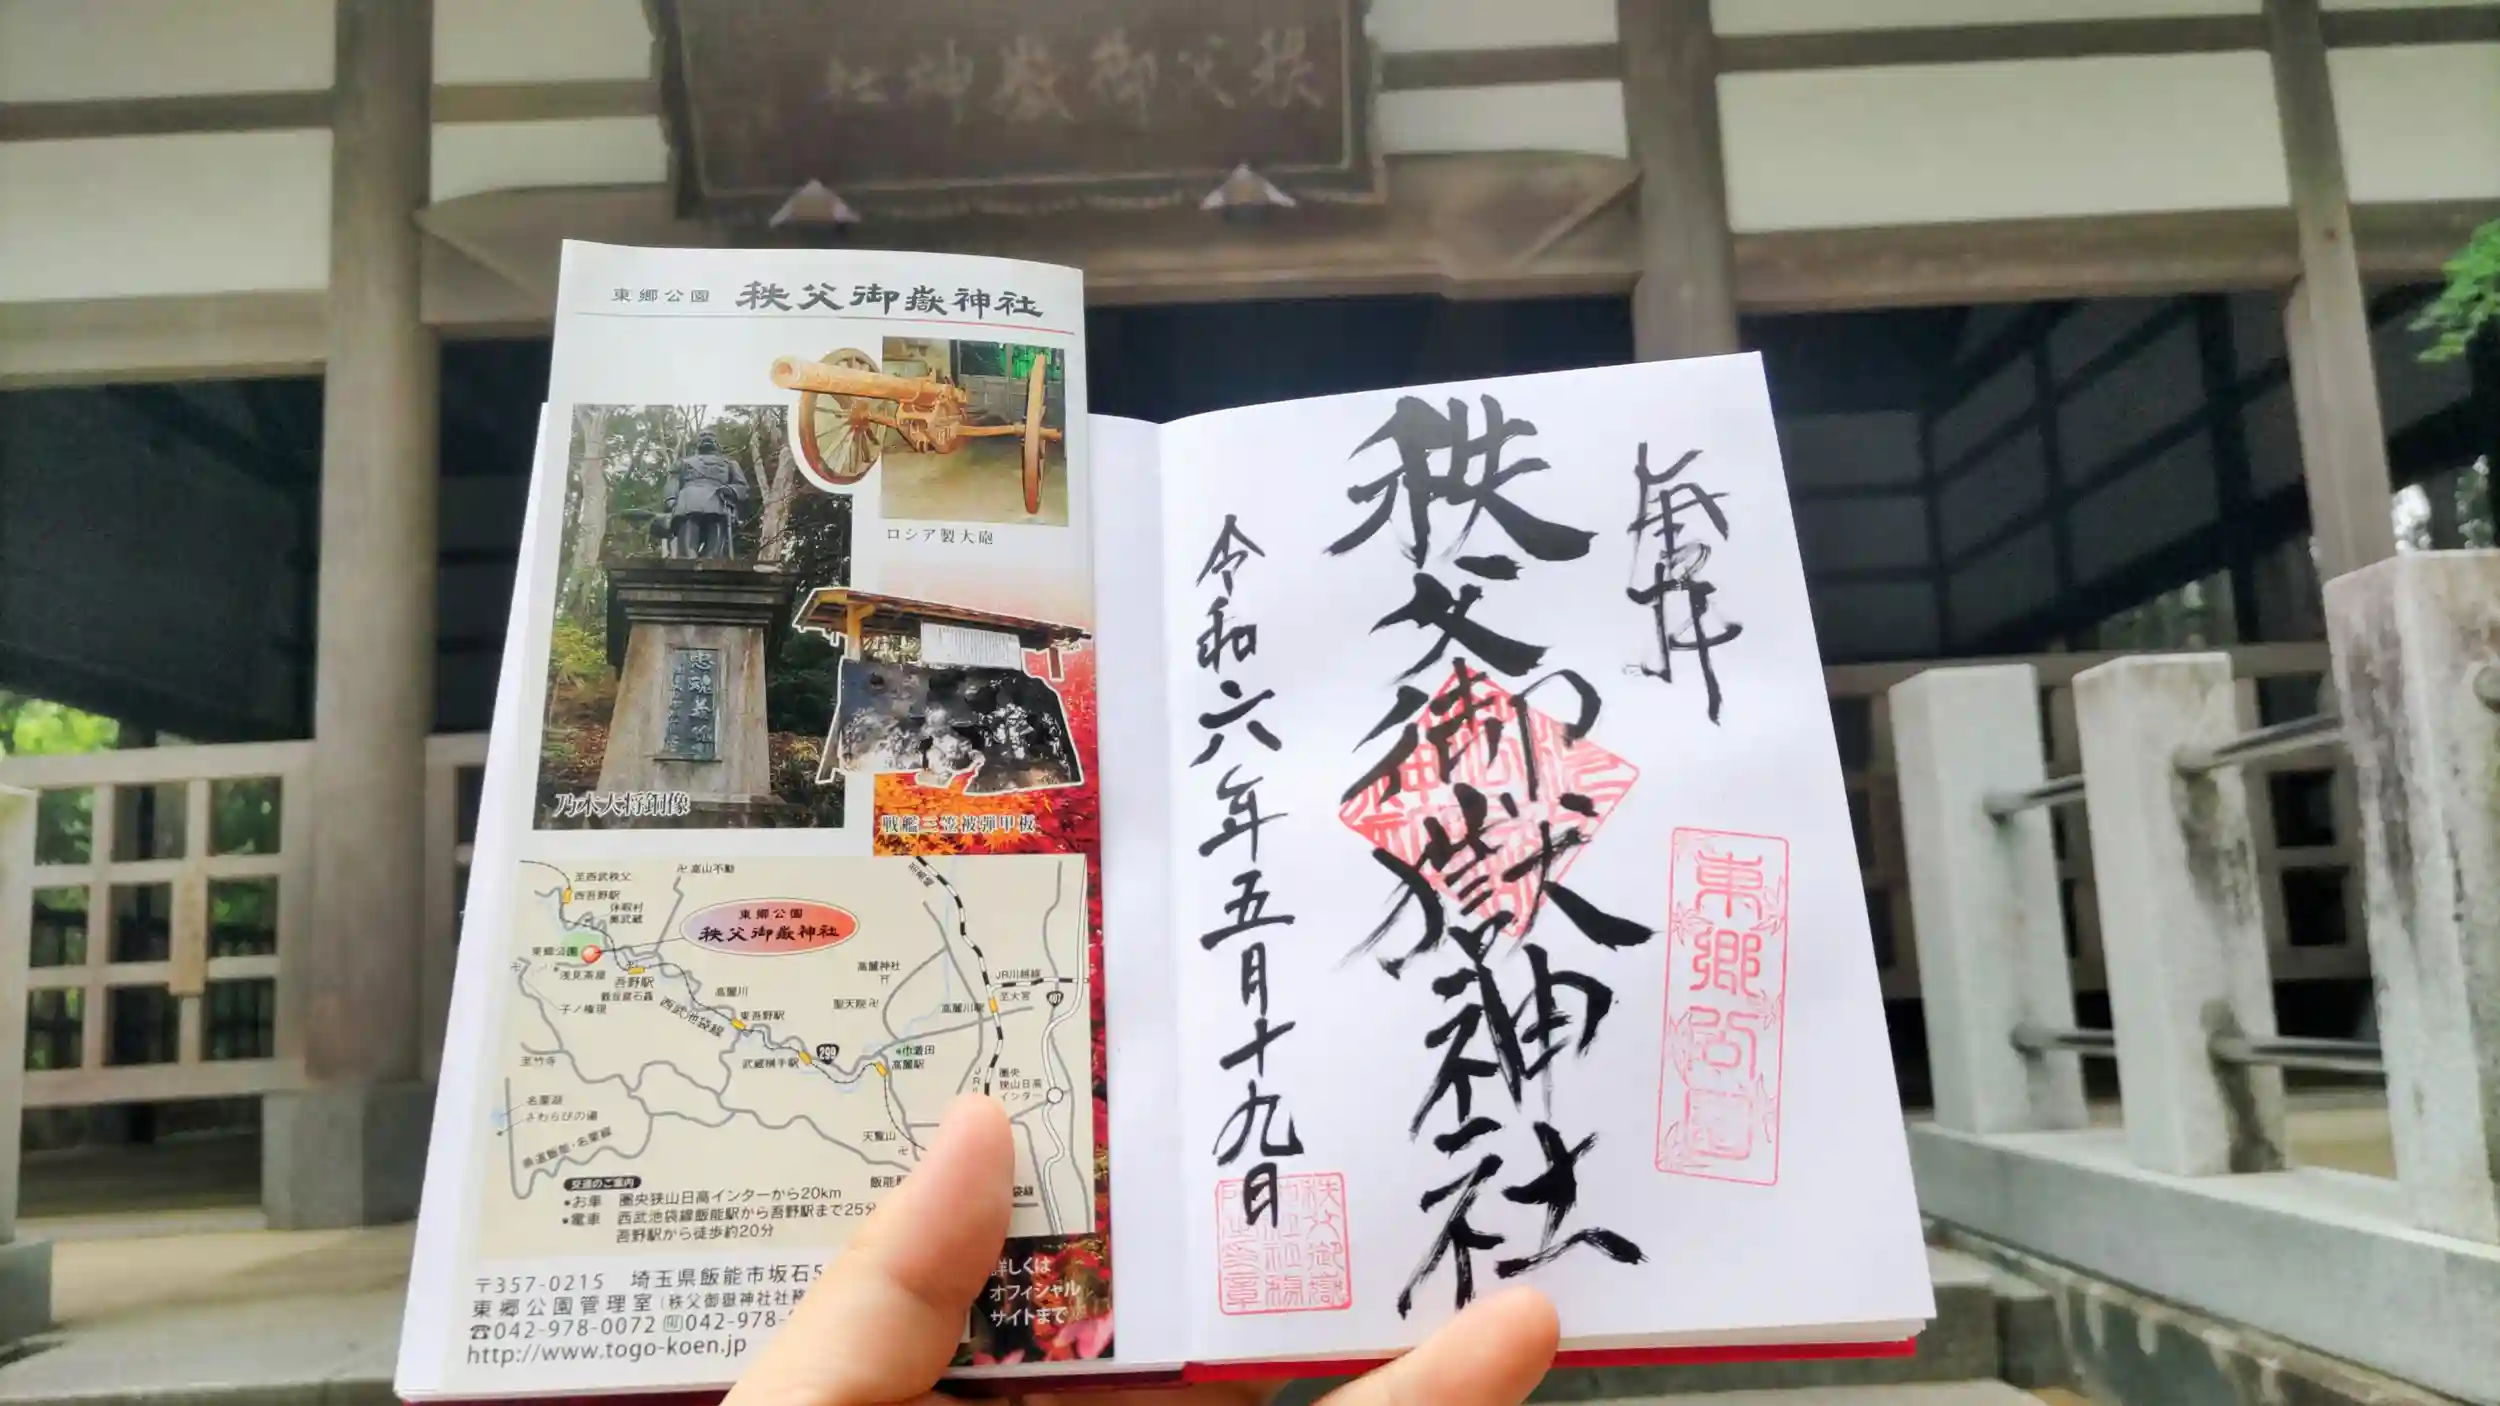 秩父御嶽神社
東郷公園 秩父御嶽神社
ロシア製大砲
忠魂
乃木大将銅像
戦艦三笠被弾甲板
至西武秩父
卍高山不動
西吾野駅
休暇村
奥武蔵
東郷公園
秩父御嶽神社
東郷公園
浅見茶屋
吾野駅
子ノ権現
西武池袋線
高麗川
東吾野駅
高麗神社
聖天院卍
高麗川駅
JR川越線
至大宮
407
至竹寺
武蔵横手駅
299
巾着田
高麗駅
圏央
狭山日高
インター
名栗湖
さわらびの湯
県道飯能・名栗線
天覧山
卍
交通のご案内
●お車 圏央狭山日高インターから20km
●電車 西武池袋線飯能駅から吾野駅まで25分
吾野駅から徒歩約20分
〒357-0215 埼玉県飯能市坂石5
東郷公園管理室(秩父御嶽神社社務
☎042-978-0072 042-978-
http://www.togo-koen.jp
詳しくは
オフィシャル
サイトまで
奉拝
東郷公園
秩父御嶽神社
令和六年五月十九日